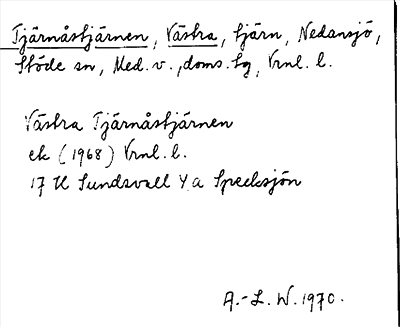 Tjärnåstjärnen, Västra, tjärn, Nedansjö,
Stöde sn, Med. v., doms. tg, Vrnl. l.
Västra Tjärnåstjärnen
ek (1968) Vrnl. l.
17 H Sundsvall 4 a Specksjön
A.-L. W. 1970.